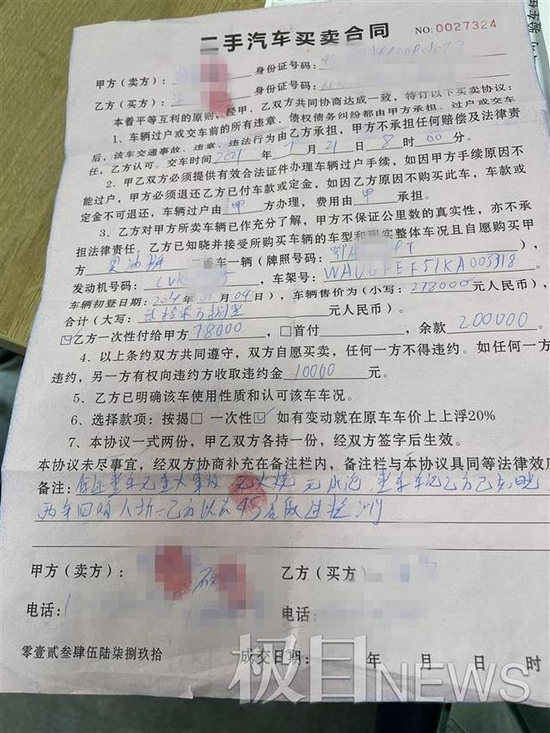 二手汽车买卖合同 NO:0027324
甲方（卖方）： 身份证号码：
乙方（买方）： 身份证号码：
本着平等互利的原则，经甲、乙双方共同协商达成一致，特订以下买卖协议：
1、车辆过户或交车前的所有违章、债权债务纠纷都由甲方承担。过户或交车
后，该车交通事故、违章、违法行为由乙方承担，甲方不承担任何赔偿及法律责
任，乙方认可。交车时间 2021 年 1 月 21 日 8 时 00 分。
2、甲乙双方必须提供有效合法证件办理车辆过户手续，如因甲方手续原因不
能过户，甲方必须退还乙方已付车款或定金，如因乙方原因不购买此车，车款或
定金不可退还，车辆过户由 甲 方办理，费用由 甲 承担。
3、乙方对甲方所卖车辆已作充分了解，甲方不保证公里数的真实性，亦不承
担法律责任。乙方已知晓并接受所购买车辆的车型和现实整体车况且自愿购买甲
方 二手车一辆（牌照号码：
发动机号码： 车架号：
车辆初登日期：09日）。车辆售价为（小写：278000 元人民币）。
合计（大写： 元人民币）。
☑乙方一次性付给甲方 78000 ，□首付 ，余款 200000
4、以上条约双方共同遵守，双方自愿买卖，任何一方不得违约。如任何一方
违约，另一方有权向违约方收取违约金 10000 元。
5、乙方已明确该车使用性质和认可该车车况。
6、选择款项：按揭□ 一次性☑ 如有变动就在原车车价上上浮20%
7、本协议一式两份，甲乙双方各持一份，经双方签字后生效。
本协议未尽事宜，经双方协商补充在备注栏内，备注栏与本协议具同等法律效应
备注：保证整车无重大事故 无火烧 无水泡
甲方（卖方）： 乙方（买方）：
电话： 电话：
零壹贰叁肆伍陆柒捌玖拾 成交日期： 年 月 日 时
极目NEWS